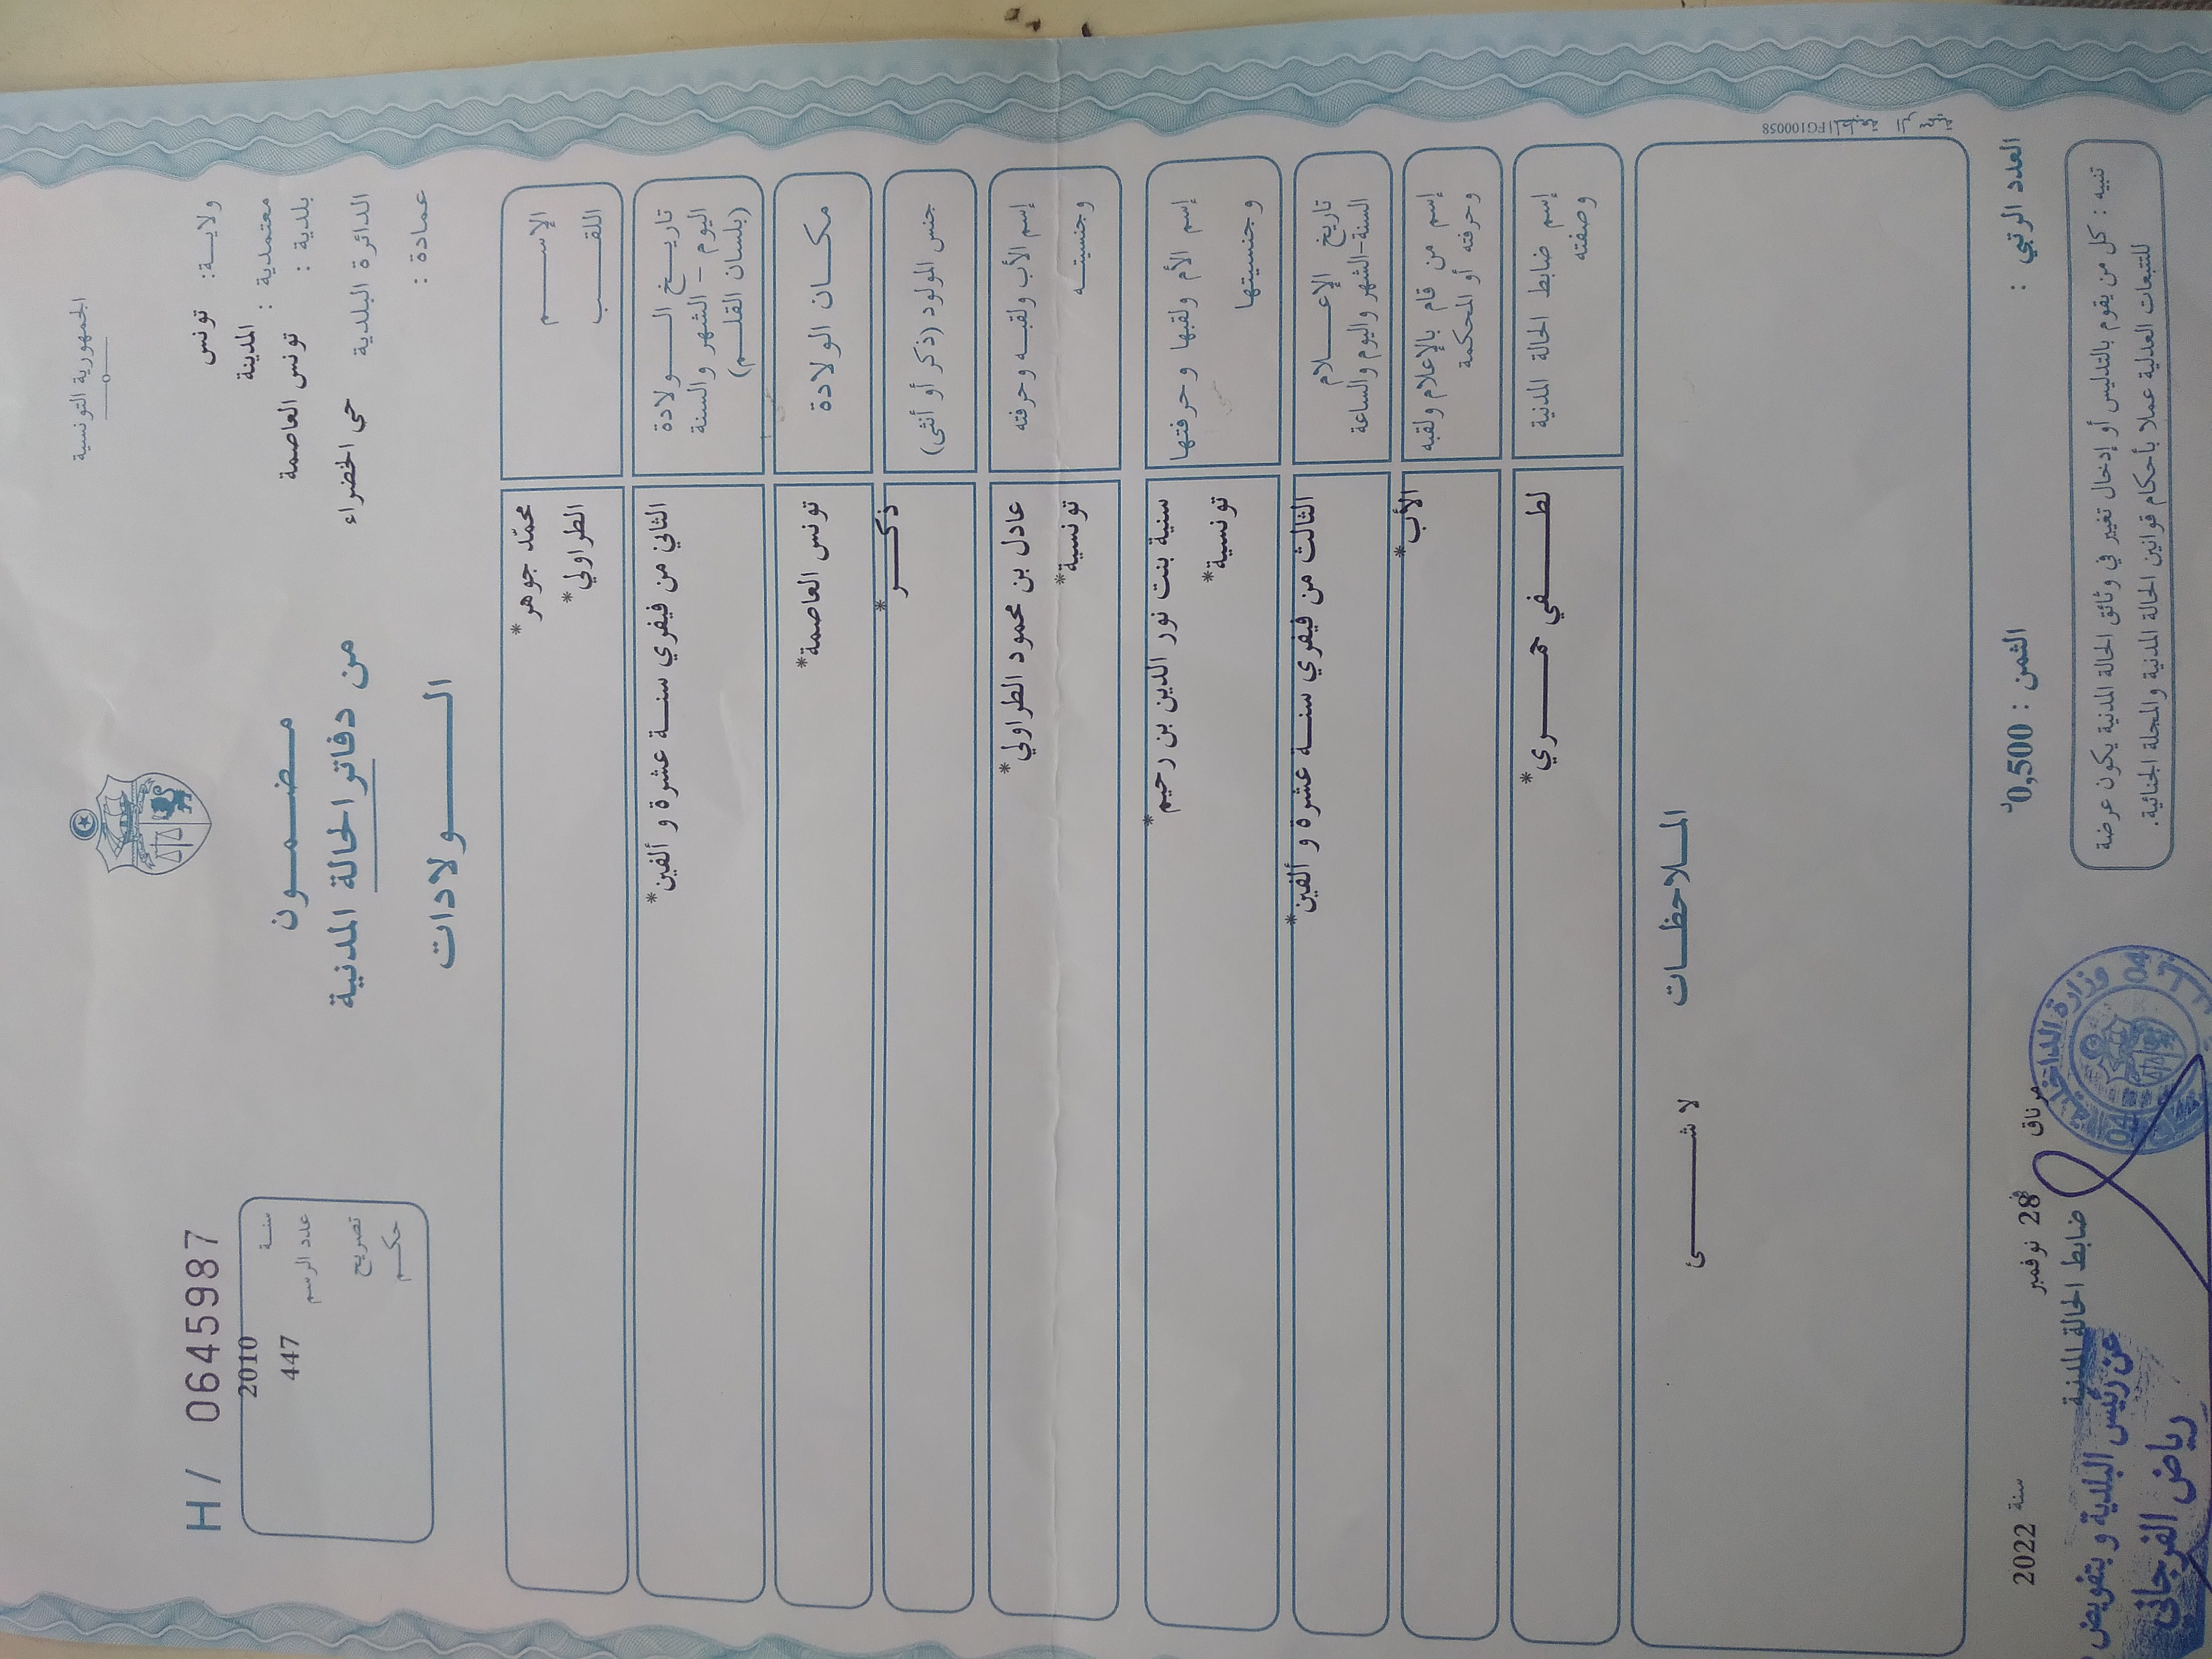 الجمهورية التونسية
ولايـــة: تونس
معتمدية : المدينة
بلدية : تونس العاصمة
الدائرة البلدية حي الخضراء
عمادة :
H / 0645987
سنــة 2010
عدد الرسم 447
تصريح
حكــم
مـضـمــون
من دفاتر الحالة المدنية
الــــولادات
الإســــــم محمّد جوهر*
اللقــــــب الطراولي*
تاريــخ الـــــولادة
اليوم - الشهر والسنة
(بلسان القلــم)
الثاني من فيفري سنــة عشرة و ألفين*
مكـــان الولادة تونس العاصمة*
جنس المولود (ذكر أو أنثى) ذكــــر*
إسم الأب ولقبــه وحرفته عادل بن محمود الطراولي*
وجنسيتــه تونسية*
إسم الأم ولقبها وحرفتها سنية بنت نور الدين بن رحيم*
وجنسيتها تونسية*
تاريخ الإعــــلام
السنة-الشهر واليوم والساعة
الثالث من فيفري سنــة عشرة و ألفين*
إسم من قام بالإعلام ولقبه
وحرفته أو المحكمة
الأب*
إسم ضابط الحالة المدنية
وصفته
لطـــــفي حمــــري*
المــلاحظــات
لا شــــــئ
المطبعة الرسمية FG100058
العدد الرتبي :
الثمن : 0,500د
مرناق في 28 نوفمبر سنة 2022
ضابط الحالة المدنية
تنبيه : كل من يقوم بالتدليس أو إدخال تغيير في وثائق الحالة المدنية يكون عرضة
للتتبعات العدلية عملا بأحكام قوانين الحالة المدنية والمجلة الجنائية.
وزارة الداخلية
04
عن رئيس البلدية و بتفويض
رياض الفرجاني